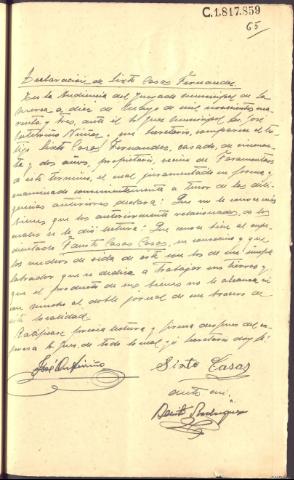 C.1.817.859
65
Declaración de Sixto Casas Fernandez
En la Audiencia del Juzgado municipal de la
a diez de de mil novecientos cua-
renta y tres, ante el Sr Juez municipal Don José
Núñez, y mi Secretario, comparece el tes-
tigo Sixto Casas Fernandez, casado, de cincuen-
ta y dos años, propietario, vecino de
a este termino, el cual juramentado en forma y
examinado convenientemente a tenor de las dili-
gencias anteriores declara: Que no le conoce más
bienes que los anteriormente relacionados, de los
cuales se le dió lectura: Que conoce bien al expe-
dientado Casas Casas, su convecino y que
los medios de vida de este son los de un simple
labrador que se dedica a trabajar sus tierras y
que el producto de sus bienes no le alcanza ni
con mucho al doble jornal de un bracero de
esta localidad.
Ratifícase previa lectura y firma despues del ex-
presado Sr Juez de todo lo cual, yo Secretario doy fé.
Sixto Casas
Ante mi,